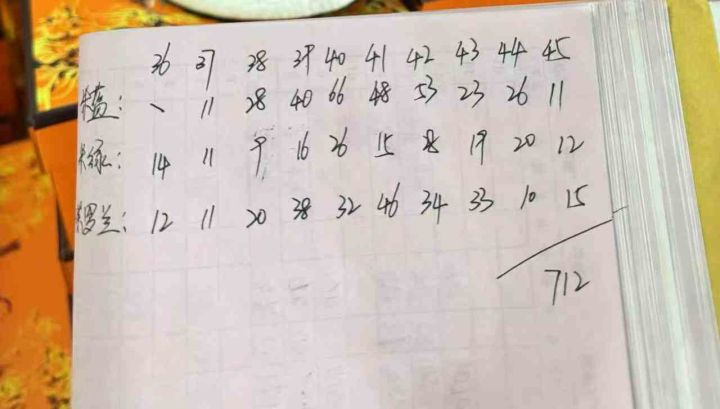 36 37 38 39 40 41 42 43 44 45
米蓝: 、 11 28 40 66 48 53 23 26 11
米绿: 14 11 9 16 26 15 8 19 20 12
米罗兰: 12 11 20 38 32 46 34 33 10 15
712